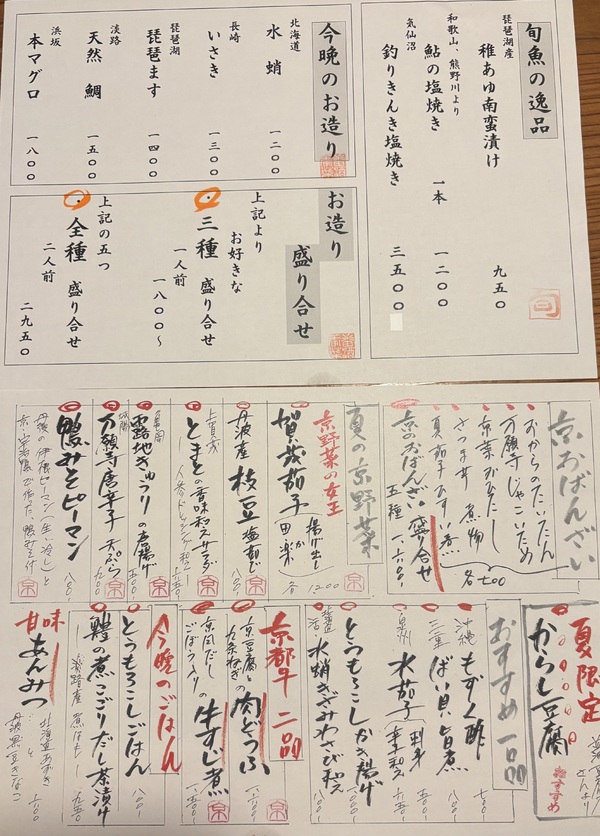 旬魚の逸品
琵琶湖産
稚あゆ南蛮漬け 九五〇
和歌山、熊野川より
鮎の塩焼き 一本 一二〇〇
気仙沼
釣りきんき塩焼き 三五〇〇
旬
今晩のお造り
北海道
水蛸 一二〇〇
長崎
いさき 一三〇〇
琵琶湖
琵琶ます 一四〇〇
淡路
天然鯛 一五〇〇
浜坂
本マグロ 一八〇〇
お造り
盛り合せ
上記より
お好きな
・三種 盛り合せ
一人前 一八〇〇〜
上記の五つ
・全種 盛り合せ
二人前 二九五〇
京おばんざい
おからのたいたん
万願寺じゃこいため
京菜おひたし
さつま芋 煮物
賀茂茄子 煮
各七〇〇
京のおばんざい盛り合せ
五種 一、六〇〇
夏の京野菜
京野菜の女王
賀茂茄子 揚げ出し か 田楽
各 1,200
丹波産
枝豆 塩ゆで
とまとの香味和えサラダ
露地きゅうりの唐揚げ
万願寺唐辛子 天ぷら
鴨みそピーマン
夏限定
からし豆腐
おすすめ
おすすめ一品
沖縄
もずく酢 七〇〇
三重
ばい貝旨煮
泉州
水茄子 刺身 辛子和え
とうもろこしかき揚げ
北海道
水蛸きざみわさび和え
京都牛二品
京豆腐と
九条ねぎの
肉どうふ
京風だし
ごぼう入りの
牛すじ煮
今晩のごはん
とうもろこしごはん
鱧の煮こごりだし茶漬け
甘味
あんみつ
北海道あずき
と
丹波黒豆きなこ